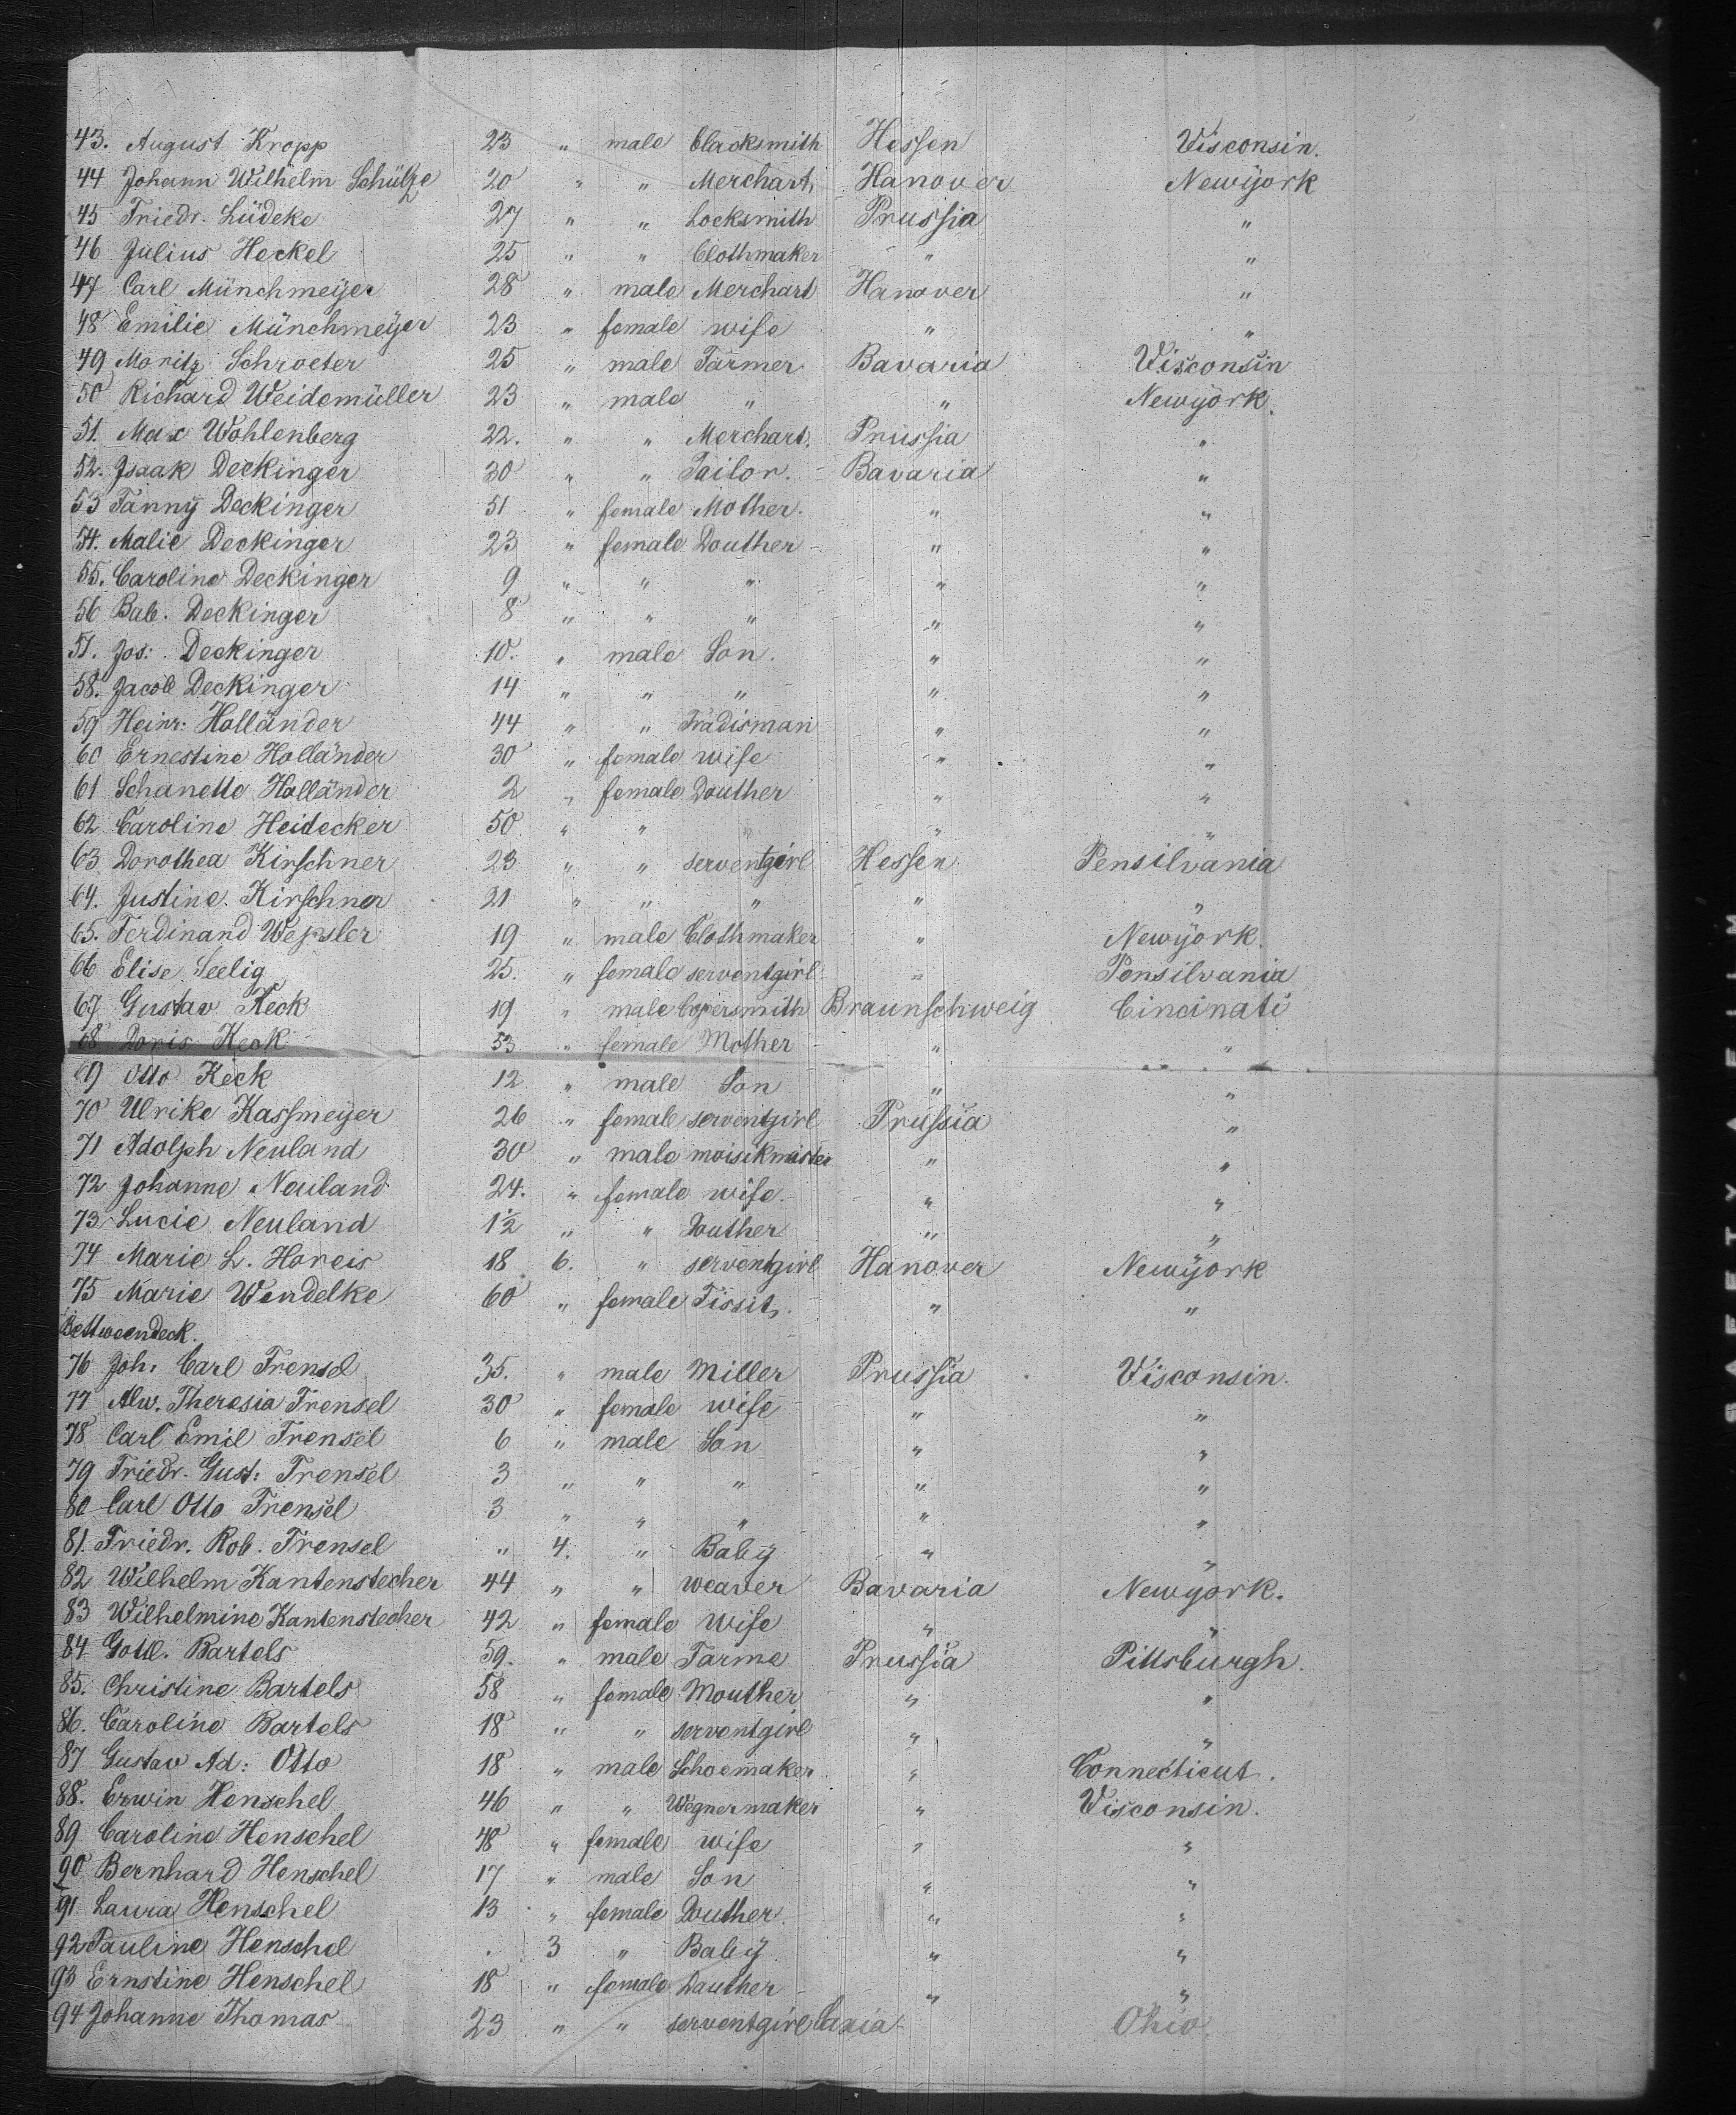 43. August Kropp 23 " male blacksmith Hessen Visconsin.
44 Johann Wilhelm Schülze 20 " " Merchart, Hanover Newÿork
45 Friedr. Lüdeke 27 " " Locksmith Prussia "
46 Julius Heckel 25 " " Clothmaker " "
47 Carl Münchmeÿer 28 " male Merchart Hanover "
48 Emilie Münchmeÿer 23 " female wife " "
49 Moritz Schroeter 25 " male Farmer Bavaria Visconsin
50 Richard Weidemüller 23 " male " " Newÿork.
51. Max Wohlenberg 22. " " Merchart. Prussia "
52. Isaak Deckinger 30 " " Tailor. Bavaria "
53 Fannÿ Deckinger 51 " female Mother. " "
54. Malie Deckinger 23 " female Douther " "
55. Caroline Deckinger 9 " " " " "
56 Bab. Deckinger 8 " " " " "
57. Jos: Deckinger 10. " male Son. " "
58. Jacob Deckinger 14 " " " " "
59 Heinr: Holländer 44 " " Tradisman " "
60 Ernestine Holländer 30 " female wife " "
61 Schanette Holländer 2 " female Douther " "
62 Caroline Heidecker 50 " " " " "
63 Dorothea Kirschner 23 " " serventgirl Hessen Pensilvania
64. Justine. Kirschner 21 " " " " "
65. Ferdinand Wepsler 19 " male Clothmaker " Newÿork.
66 Elise Seelig 25. " female serventgirl " Pensilvania
67 Gustav Keck 19 " male Copersmith Braunschweig Cincinati
68 Doris Keck 53 " female Mother " "
69 Otto Keck 12 " male Son " "
70 Ulrike Kassmeyer 26 " female serventgirl Prussia "
71 Adolph Neuland 30 " male moisikmaster " "
72 Johanne Neuland 24. " female wife. " "
73 Lucie Neuland 1½ " " Douther " "
74 Marie L. Horeis 18 6. " serventgirl Hanover Newÿork
75 Marie Wendelke 60 " female Fissit. " "
Bettweendeck.
76 Joh. Carl Frensel 35. " male Miller Prussia Visconsin.
77 Alw. Theresia Frensel 30 " female wife " "
78 Carl Emil Frensel 6 " male Son " "
79 Friedr. Gust: Frensel 3 " " " " "
80 Carl Otto Frensel 3 " " " " "
81. Friedr. Rob. Frensel " 4. " Babÿ " "
82 Wilhelm Kantenstecher 44 " " weaver Bavaria Newÿork.
83 Wilhelmine Kantenstecher 42 " female wife " "
84 Gottl. Bartels 59. " male Farme Prussia Pittsburgh.
85. Christine Bartels 58 " female Mouther " "
86. Caroline Bartels 18 " " serventgirl " "
87 Gustav Ad: Otto 18 " male Schoemaker " Connecticut.
88. Erwin Henschel 46 " " Wegnermaker " Visconsin.
89 Caroline Henschel 48 " female wife " "
90 Bernhard Henschel 17 " male Son " "
91. Laura Henschel 13 " female Douther. " "
92 Pauline Henschel . 3 " Babÿ " "
93 Ernstine Henschel 18 " female Dauther " "
94 Johanne Thomas 23 " " serventgirl Saxia Ohio.